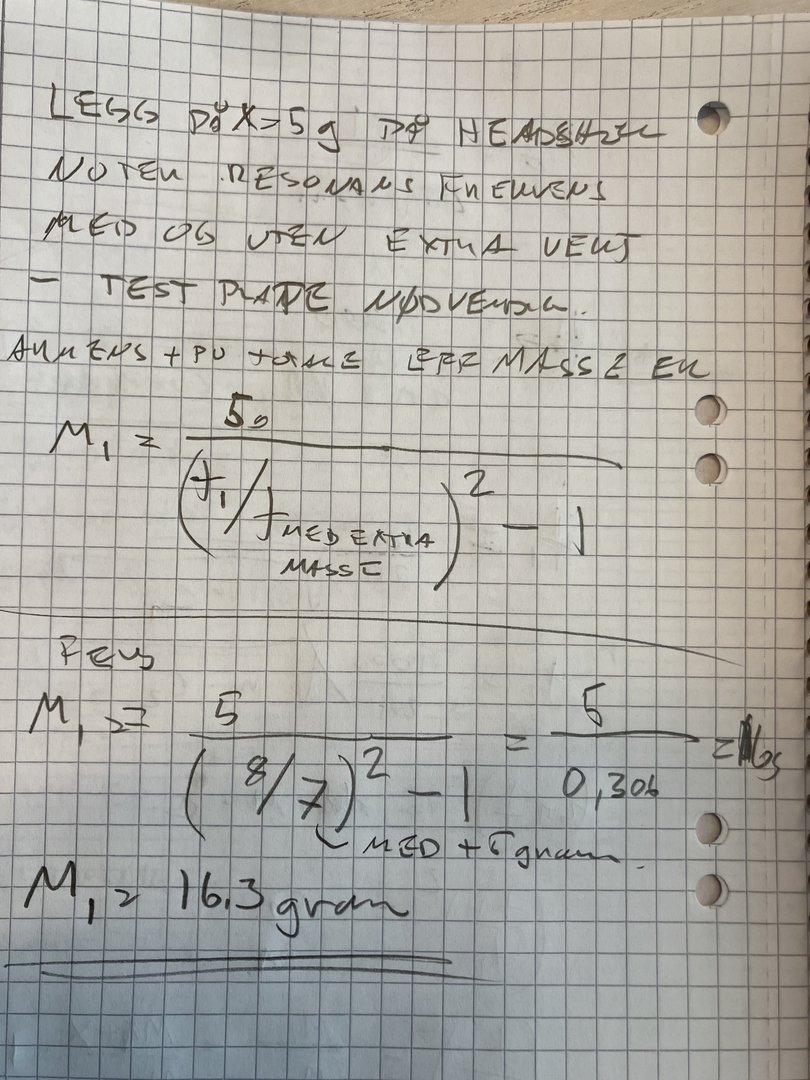 LEGG PÅ X=5g PÅ HEADSHELL
NOTER RESONANS FREKVENS
MED OG UTEN EXTRA VEKT
- TEST PLATE NØDVENDIG.
ARMENS + PU EFF MASSE ER
M₁ = 5g / ((f₁/f MED EXTRA MASSE)² - 1)
FEKS
M₁ = 5 / ((8/7)² - 1) = 5 / 0,306 = 16g
MED + 5 gram.
M₁ = 16.3 gram